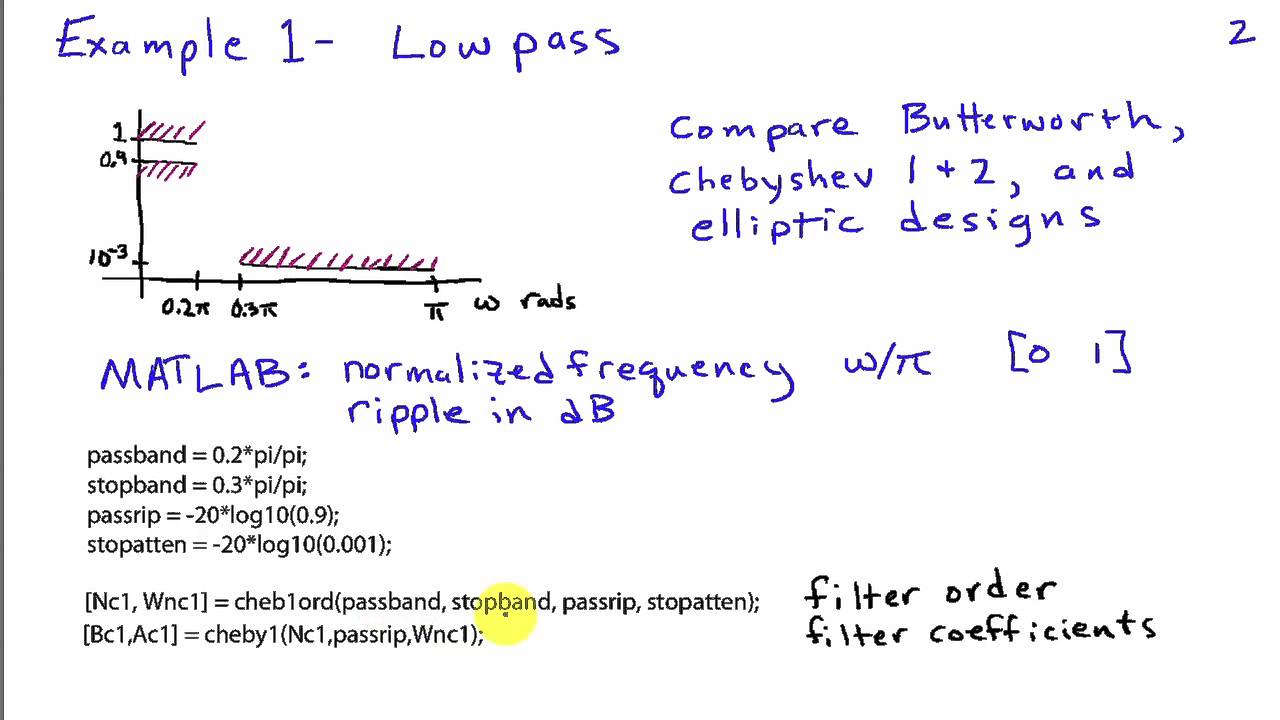 Example 1- Lowpass
2
1
0.9
10⁻³
0.2π 0.3π π ω rads
Compare Butterworth,
Chebyshev 1+2, and
elliptic designs
MATLAB: normalized frequency ω/π [0 1]
ripple in dB
passband = 0.2*pi/pi;
stopband = 0.3*pi/pi;
passrip = -20*log10(0.9);
stopatten = -20*log10(0.001);
[Nc1, Wnc1] = cheb1ord(passband, stopband, passrip, stopatten);
filter order
[Bc1,Ac1] = cheby1(Nc1,passrip,Wnc1);
filter coefficients